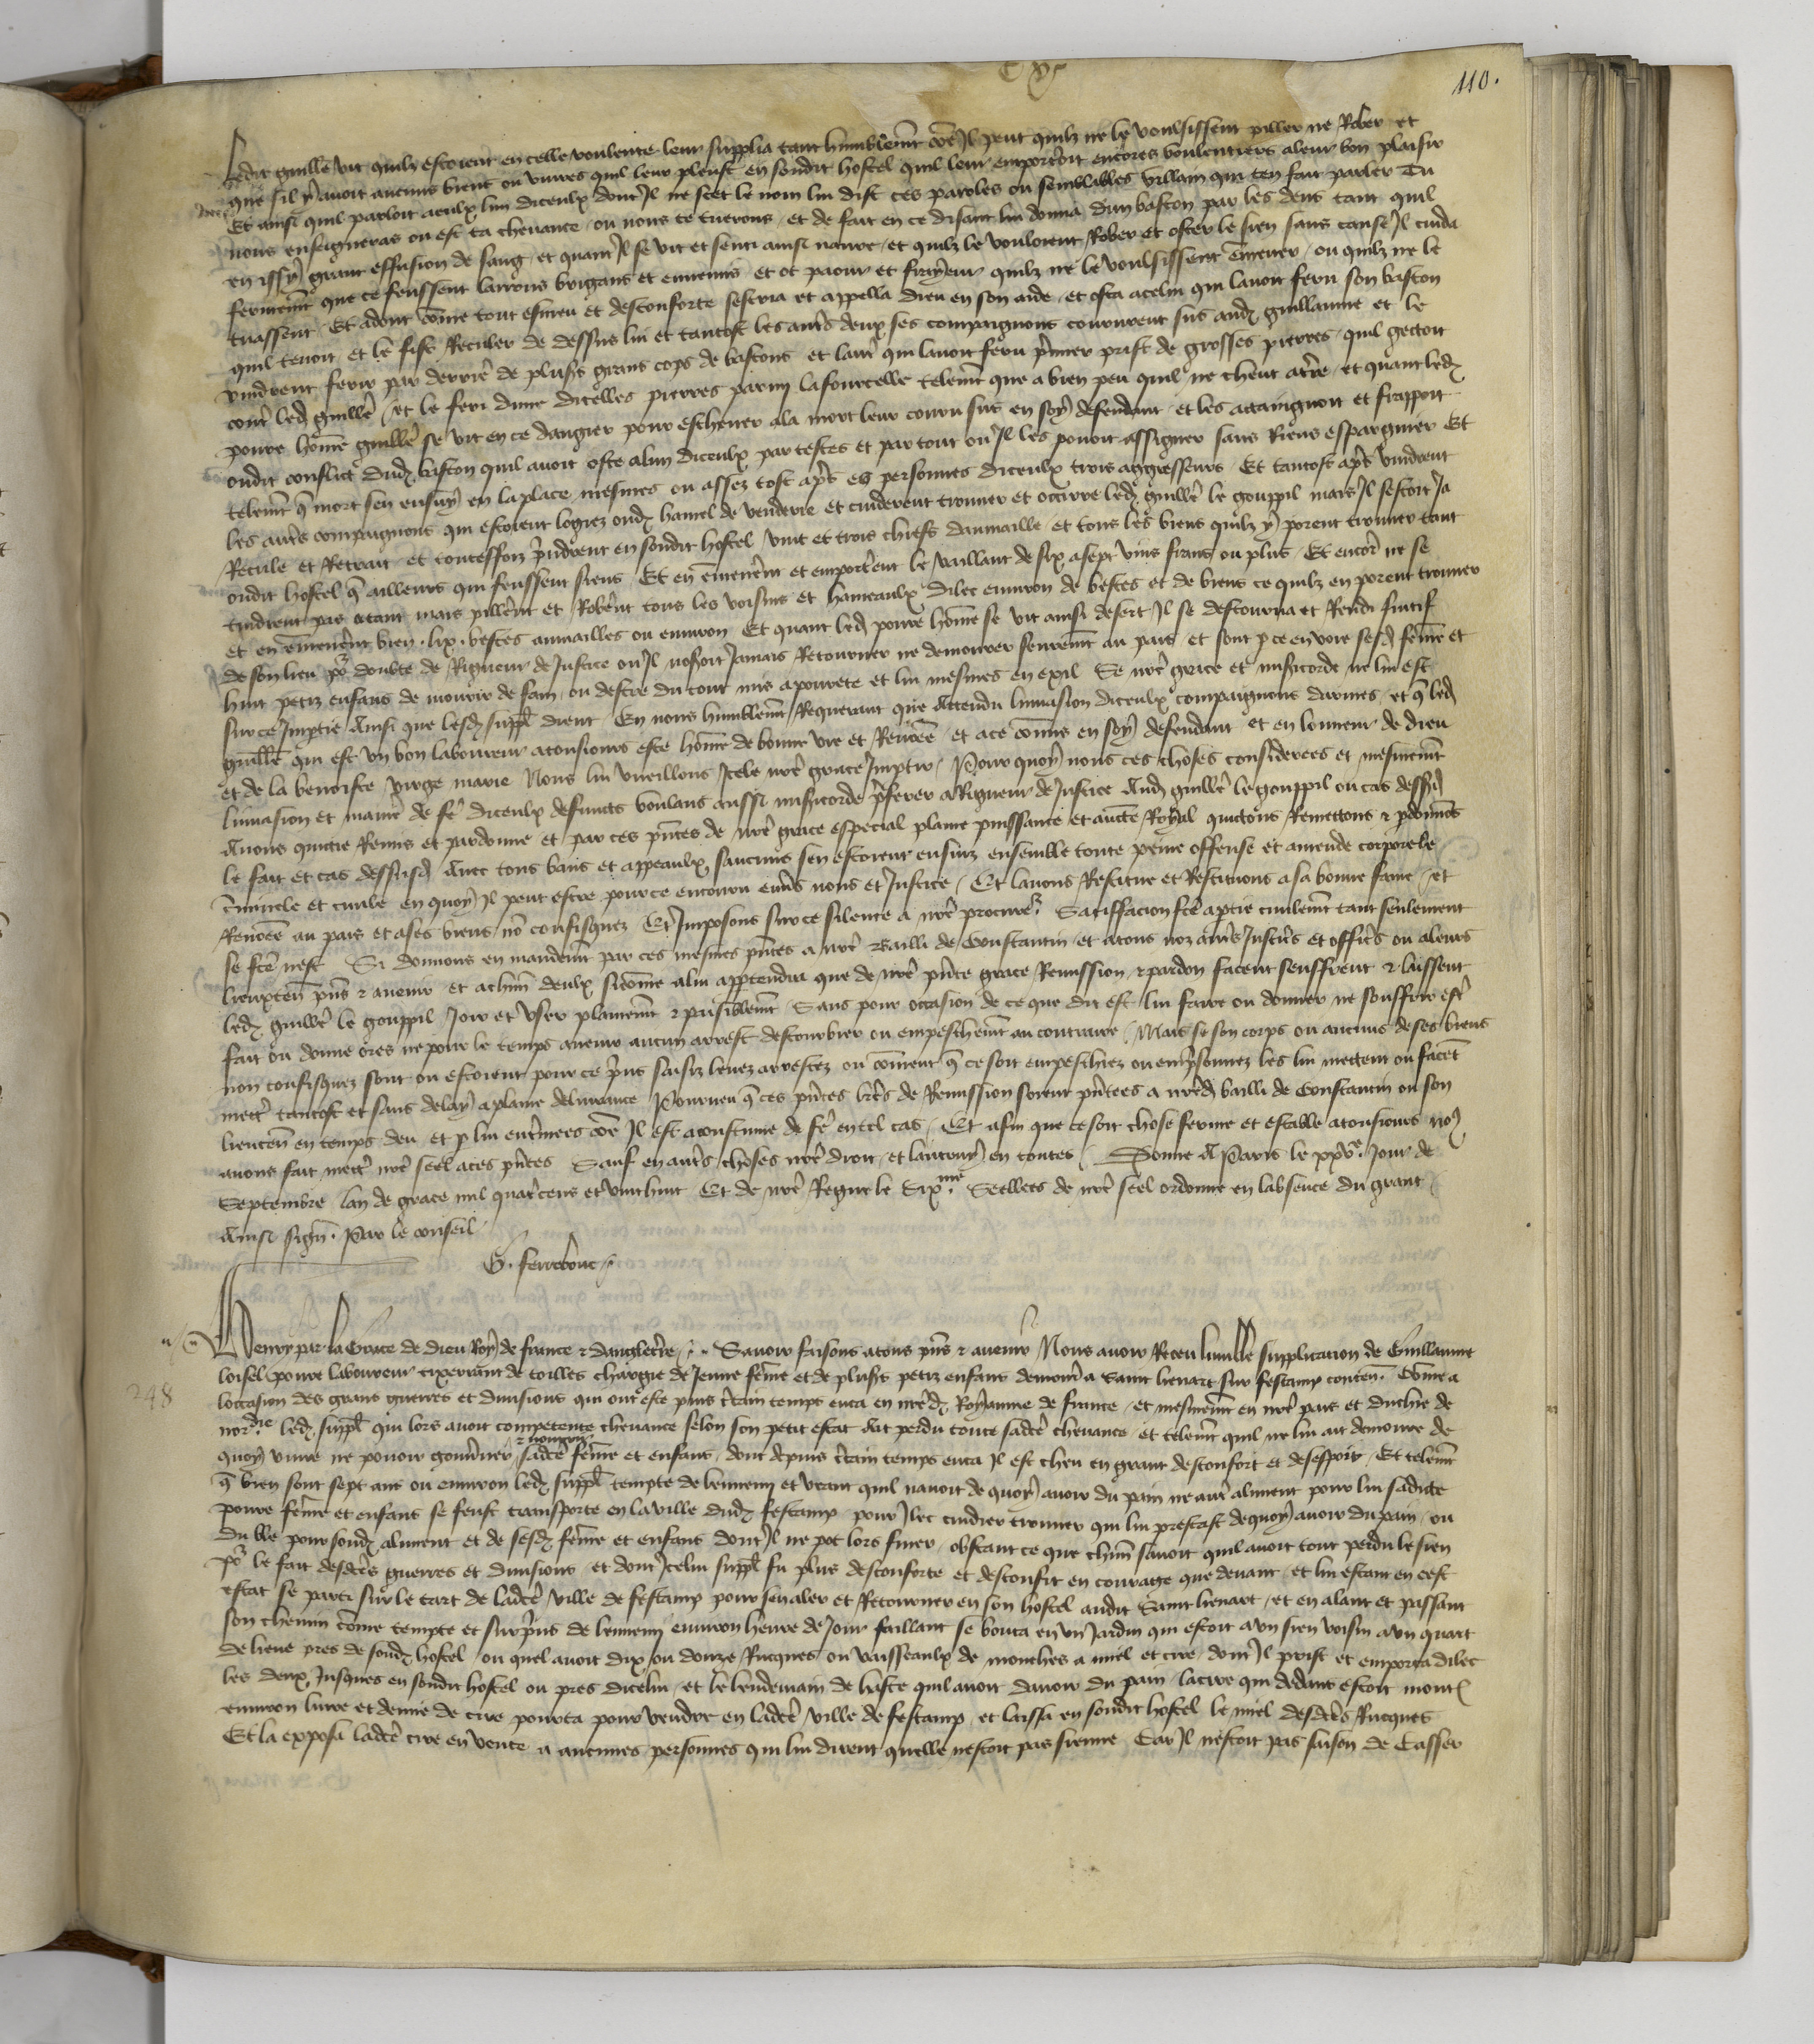 CX
110.
Ledit guille vit quilz estoient en celle voulente leur supplia tant humblemt cōe Il peut quilz ne le voulsissent piller ne Rober et
que sil y avoit aucuns biens ou vivres quil leur pleust en sondit hostel quil leur emporteroit encores voulentiers a leur bon plaisir
Et ainsi quil parloit a ceulx lun diceulx dont Il ne scet le nom lui dist ces paroles ou semblables villain qui ten fait parler Tu
nous enseigneras ou est ta chevance ou nous te tuerons et de fait en ce disant lui donna dun baston par les dens tant quil
en issy grant effusion de sang et quant Il se vit et senti ainsi navre et quilz le vouloient Rober et oster le sien sans cause Il cuida
fermemt que ce feussent larrons brigans et ennemis et ot paour et frayeur quilz ne le voulsissent emener ou quilz ne le
tuassent Et adont cōme tout esmeu et desconforte sescria et appella dieu en son aide et osta a celui qui lavoit feru son baston
quil tenoit et le fist Reculer de dessus lui et tantost les autres deux ses compaignons coururent sus audz guillaume et le
vindrent ferir par derriere de plusrs grans cops de bastons et lautre qui lavoit feru premier prist de grosses pierres quil gectoit
contre ledz guille et le feri dune dicelles pierres parmi la fourcelle telemt que a bien peu quil ne cheut a terre et quant ledz
povre hōme guille se vit en ce dangier pour eschever a la mort leur couru sus en soy defendant et les actaignoit et frappoit
oudit conflict dudz baston quil avoit oste a lun diceulx par testes et par tout ou Il les povoit assigner sans Riens espargnier Et
telemt q mort sen ensuy en la place mesmes ou assez tost apres es personnes diceulx trois aggresseurs Et tantost apres vindrent
les autres compaignons qui estoient logiez oudz hamel de venderie et cuiderent trouver et occirre ledz guille le gouppil mais Il sestoit Ja
Recule et Retrait et toutesfoiz prindrent en sondit hostel vint et trois chiefs daumaille et tous les biens quilz y porent trouver tant
oudit hostel q ailleurs qui feussent siens Et en emenerent et emporterent le vaillant de six a sept vins frans ou plus Et encore ne se
tindrent pas atant mais pillerent et Roberent tous les voisins et hameaulx dilec environ de bestes et de biens ce quilz en porent trouver
et en emenerent bien lix bestes aumailles ou environ Et quant ledz povre hōme se vit ainsi desert Il se destourna et Rendi fuitif
de son lieu por doubte de Rigueur de Justice ou Il nosoit Jamais Retourner ne demourer seuremt au pais et sont p ce en voie sesdz fēme et
huit petiz enfans de mourir de fain ou destre du tout mis a povrete et lui mesmes en exil Se nrē grace et misicorde ne lui est
sur ce Impartie Ainsi que lesdz suppl dient En nous humblemt Requerant que Attendu linvasion diceulx compaignons darmes et q ledz
guille qui est un bon laboureur a tousiours este hōme de bonne vie et Renōēe et a ce cōmis en soy defendant et en lonneur de dieu
et de la benoiste virge marie Nous lui vueillons Icele nrē grace Impartir Pour quoy nous ces choses considerees et mesmemt
linvasion et maniere de fe diceulx defuncts voulans aussi misicorde preferer a Rigueur de Justice Audz guille le gouppil ou cas dessdz
Avons quicte Remis et pardonne et par ces pntes de nrē grace especial plaine puissance et aucte Royal quictons Remettons z pdonnōs
le fait et cas dessusdz Avec tous bans et appeaulx saucuns sen estoient ensuiz ensemble toute peine offense et amende corporele
criminele et civile en quoy Il peut estre pour ce encouru envers nous et Justice Et lavons Restitue et Restituons a sa bonne fame et
Renōēe au pais et a ses biens nō confisquez Et Imposons sur ce silence a nrē procureur Satisfacion fcē a partie civilemt tant seulement
se fcē nest Si donnons en mandemt par ces mesmes pntes a nrē Bailli de Constantin et a tous noz autres Justiciers et officiers ou a leurs
lieuxten pns z avenir et a chun deulx sicōme a lui appartendra que de nrē pnte grace Remission z pardon facent seuffrent z laissent
ledz guille le gouppil Joir et user plainemt z paisiblemt Sans pour occasion de ce que dit est lui faire ou donner ne souffrir estre
fait ou donne ores ne pour le temps avenir aucun arrest destourbier ou empeschemt au contraire Mais se son corps ou aucuns de ses biens
non confisquez sont ou estoient pour ce prins saisiz levez arrestez ou cōment q ce soit empeschiez ou emprisonnez les lui mettent ou facent
mettre tantost et sans delay a plaine delivrance Pourveu q ces pntes lrēs de Remission soient pntees a nrēdz bailli de Constantin ou son
lieuten en temps deu et p lui enterinees cōe Il est acoustume de fe en tel cas Et afin que ce soit chose ferme et estable a tousiours no9
avons fait mettre nrē seel a ces pntes Sauf en autres choses nrē droit et lautruy en toutes Donne A Paris le xxve Jour de
Septembre lan de grace mil quatrecens et vint huit Et de nrē Regne le Sixme Seellees de nrē seel ordonne en labsence du grant
Ainsi sign. Par le conseil
G. ferrebouc
248
Henry par la Grace de dieu Roy de france z dangleterre Savoir faisons a tous pns z avenir Nous avoir Receu lumble supplicacion de Guillaume
loisel povre laboureur tixerrant de toilles chargie de Jeune fēme et de plusrs petiz enfans demourant a Saint lienart sur festamp conten. Cōme a
loccasion des grans guerres et divisions qui ont este puis certain temps enca en nrēdz Royaume de france et mesmemt en nrē pais et duchie de
nordie ledz suppl qui lors avoit competente chevance selon son petit estat Ait perdu toute sadcē chevance et telemt quil ne lui ait demoure de
quoy vivre ne povoir gouverner z nourrir sadcē fēme et enfans dont depuis certain temps enca Il est cheu en grant desconfort et desespoir Et telemt
q bien sont sept ans ou environ ledz suppl tempte de lennemi et veant quil navoit de quoy avoir du pain ne autre aliment pour lui sadicte
povre fēme et enfans se feust transporte en la ville dudz festamp pour Ilec cuidier trouver qui lui prestast de quoy avoir du pain ou
du ble pour sondz aliment et de sesdz fēme et enfans dont Il ne pot lors finer obstant ce que chun savoit quil avoit tout perdu le sien
por le fait desdcēs guerres et divisions et dont Icelui suppl fu plus desconforte et desconfit en courage que devant et lui estant en cest
estat se parti sur le tart de ladcē ville de festamp pour sen aler et Retourner en son hostel audit Saint lienart et en alant et passant
son chemin cōme tempte et surprins de lennemi environ heure de Jour faillant se bouta en un Jardin qui estoit a un sien voisin a un quart
de lieue pres de sondz hostel ou quel avoit dix ou douze Rucques ou vaisseaulx de mouches a miel et cire dont Il prist et emporta dilec
les deux Jusques en sondit hostel ou pres dicelui et le lendemain de haste quil avoit davoir du pain la cire qui dedans estoit montz
environ livre et demie de cire porta pour vendre en ladcē ville de festamp et laissa en sondit hostel le miel desdcēs Rucques
Et la exposa ladcē cire en vente a aucunes personnes qui lui dirent quelle nestoit pas sienne Car Il nestoit pas saison de Casser